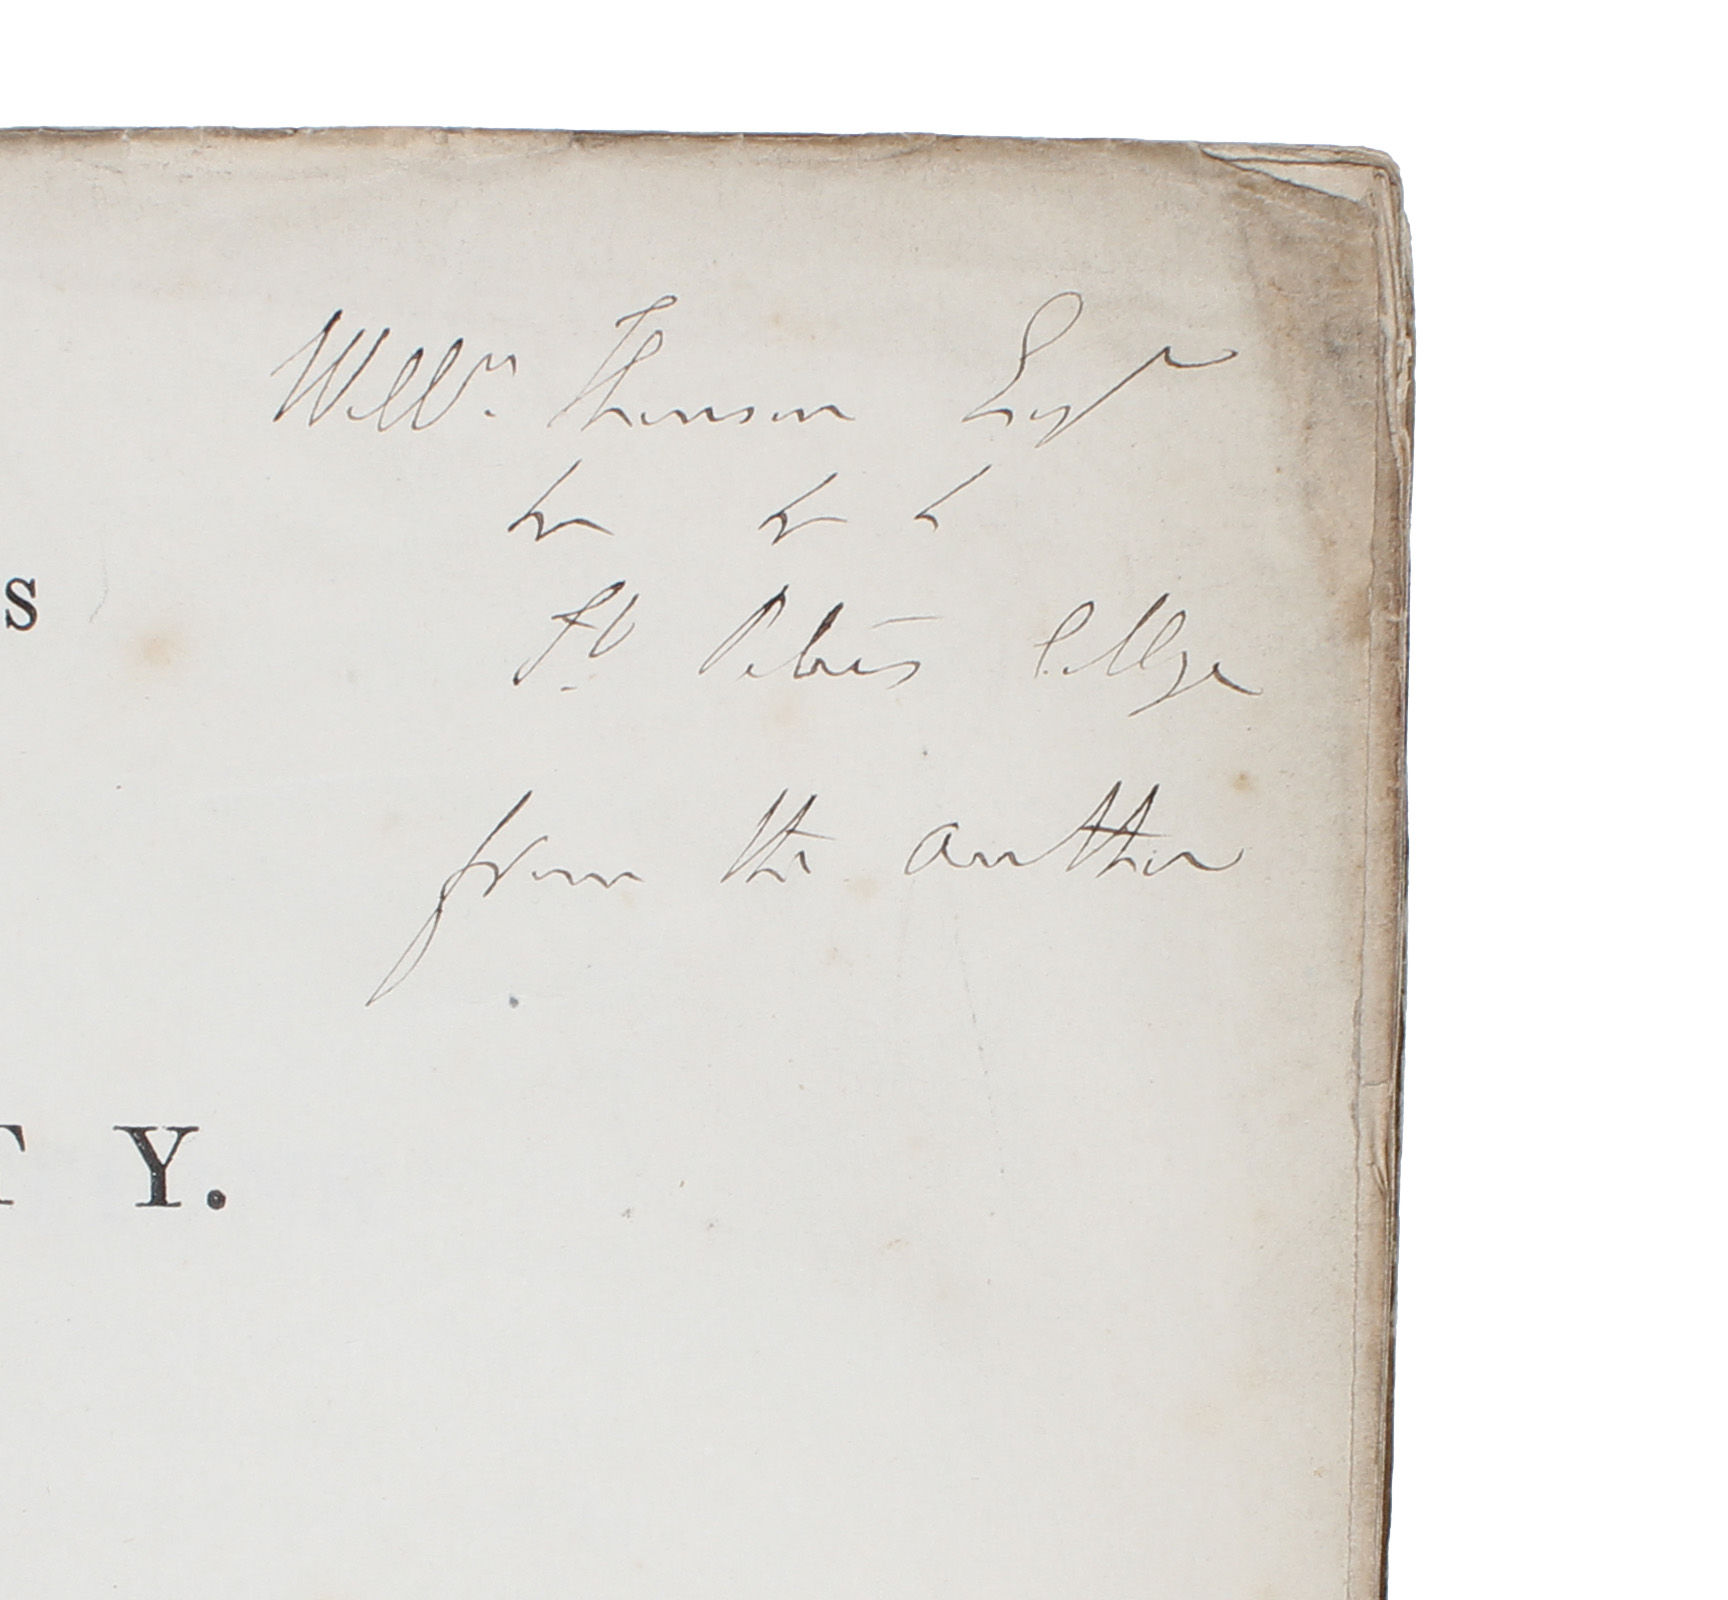 Willm. Thomson Esqr
&c &c &c
S
St. Peter's College
from the author
TY.